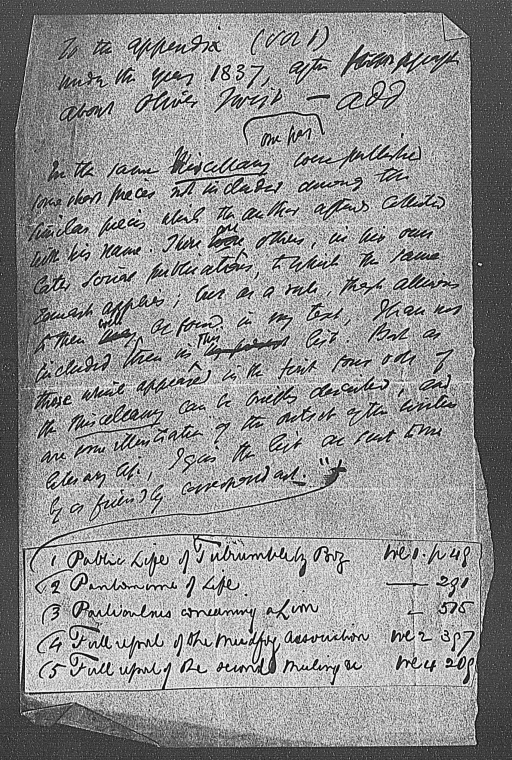 To the appendix (vol 1)
under the year 1837, after
about Oliver Twist — add
one par
In the same Miscellany were published
some short pieces not included among the
similar pieces which the author afterwards collected
with his name. There are others, in his own
later serial publications, to which the same
remark applies; but as a rule, though allusions
to them will be found in my text, I have not
included them in this list. But as
those which appeared in the first four vols of
the Miscellany can be briefly described, and
are some illustration of the outset of the writer's
literary life, I give the list as sent to me
by a friendly correspondent
(1 Public Life of Tulrumble by Boz vol 1. p 49
(2 Pantomime of Life — 291
(3 Particulars concerning a Lion — 515
(4 Full report of the Mudfog Association vol 2 397
(5 Full report of the second Meeting &c vol 4 209